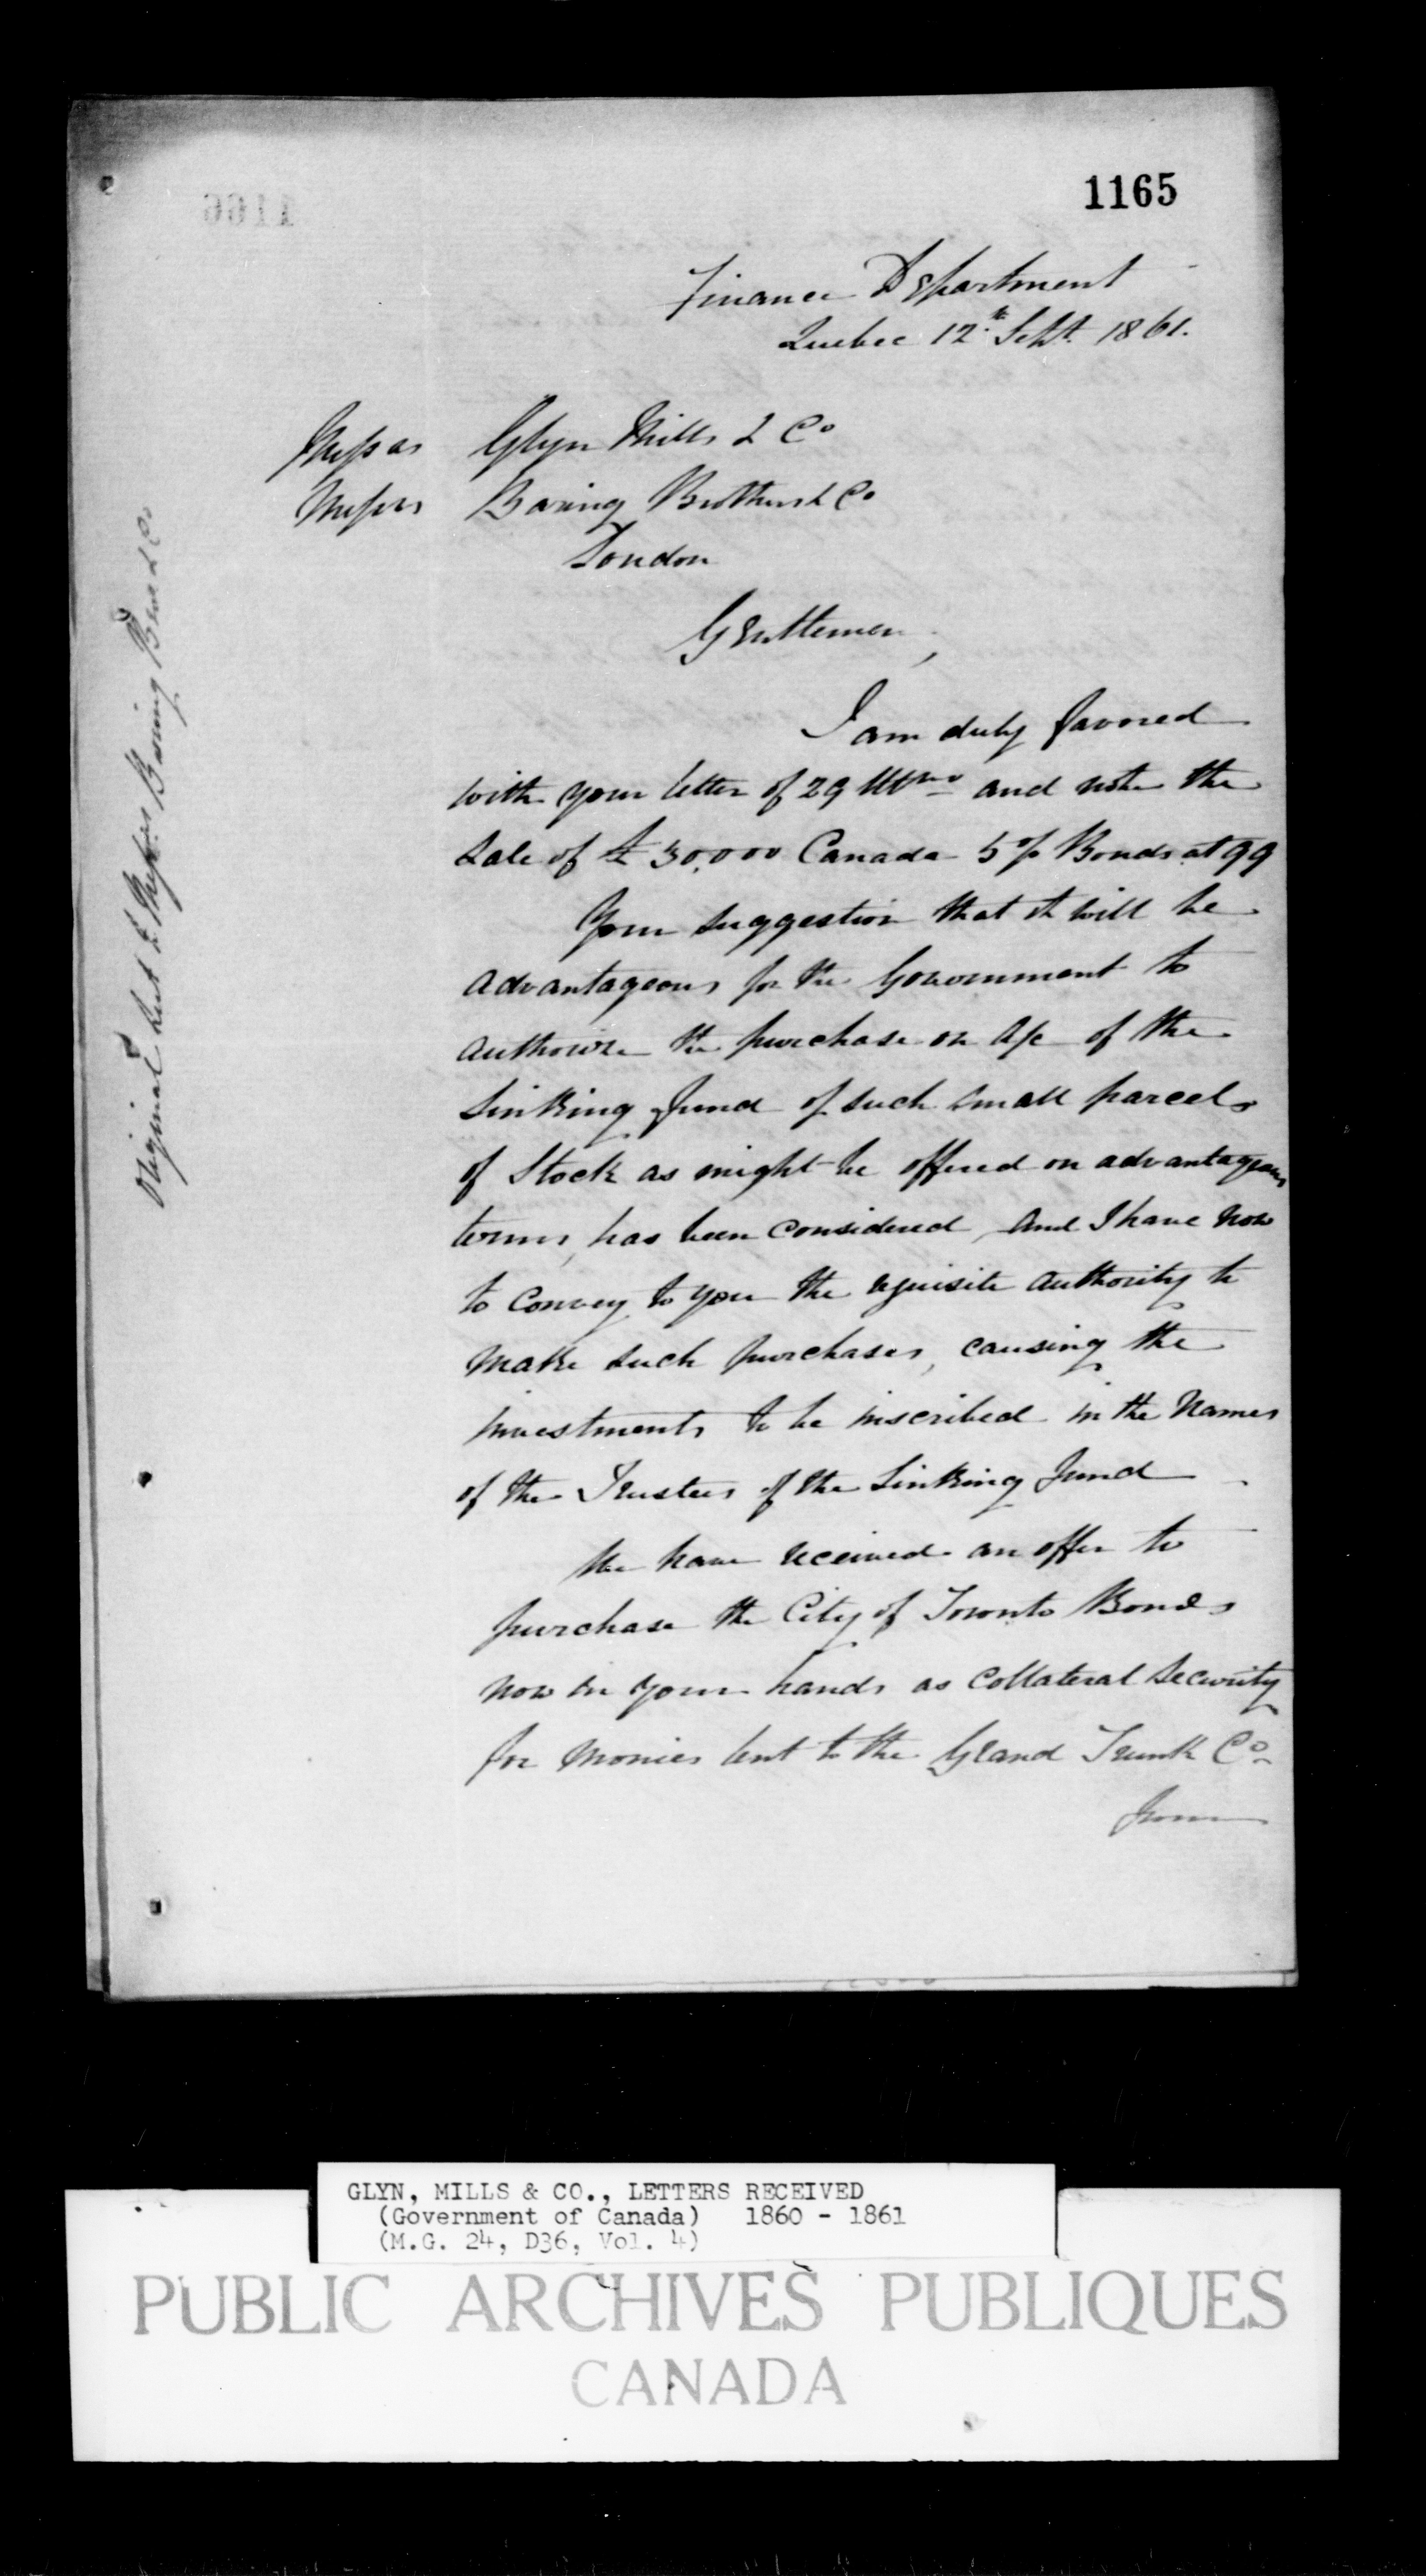 1165
Finance Department
Quebec 12th Sept. 1861.
Messrs Glyn Mills & Co
Messrs Baring Brothers & Co
London
Gentlemen,
I am duly favored
with your letter of 29 Ulto and note the
Sale of £30,000 Canada 5% Bonds at 99
Your suggestion that it will be
advantageous for the Government to
authorize the purchase on a/c of the
Sinking fund of such small parcels
of Stock as might be offered on advantageous
terms, has been considered, and I have now
to convey to you the requisite authority to
make such purchases, causing the
investments to be inscribed in the names
of the Trustees of the Sinking fund
We have received an offer to
purchase the City of Toronto Bonds
now in your hands as collateral security
for monies lent to the Grand Trunk Co
from
Original sent to Messrs Baring Bros & Co
GLYN, MILLS & CO., LETTERS RECEIVED
(Government of Canada) 1860 - 1861
(M.G. 24, D36, Vol. 4)
PUBLIC ARCHIVES PUBLIQUES
CANADA